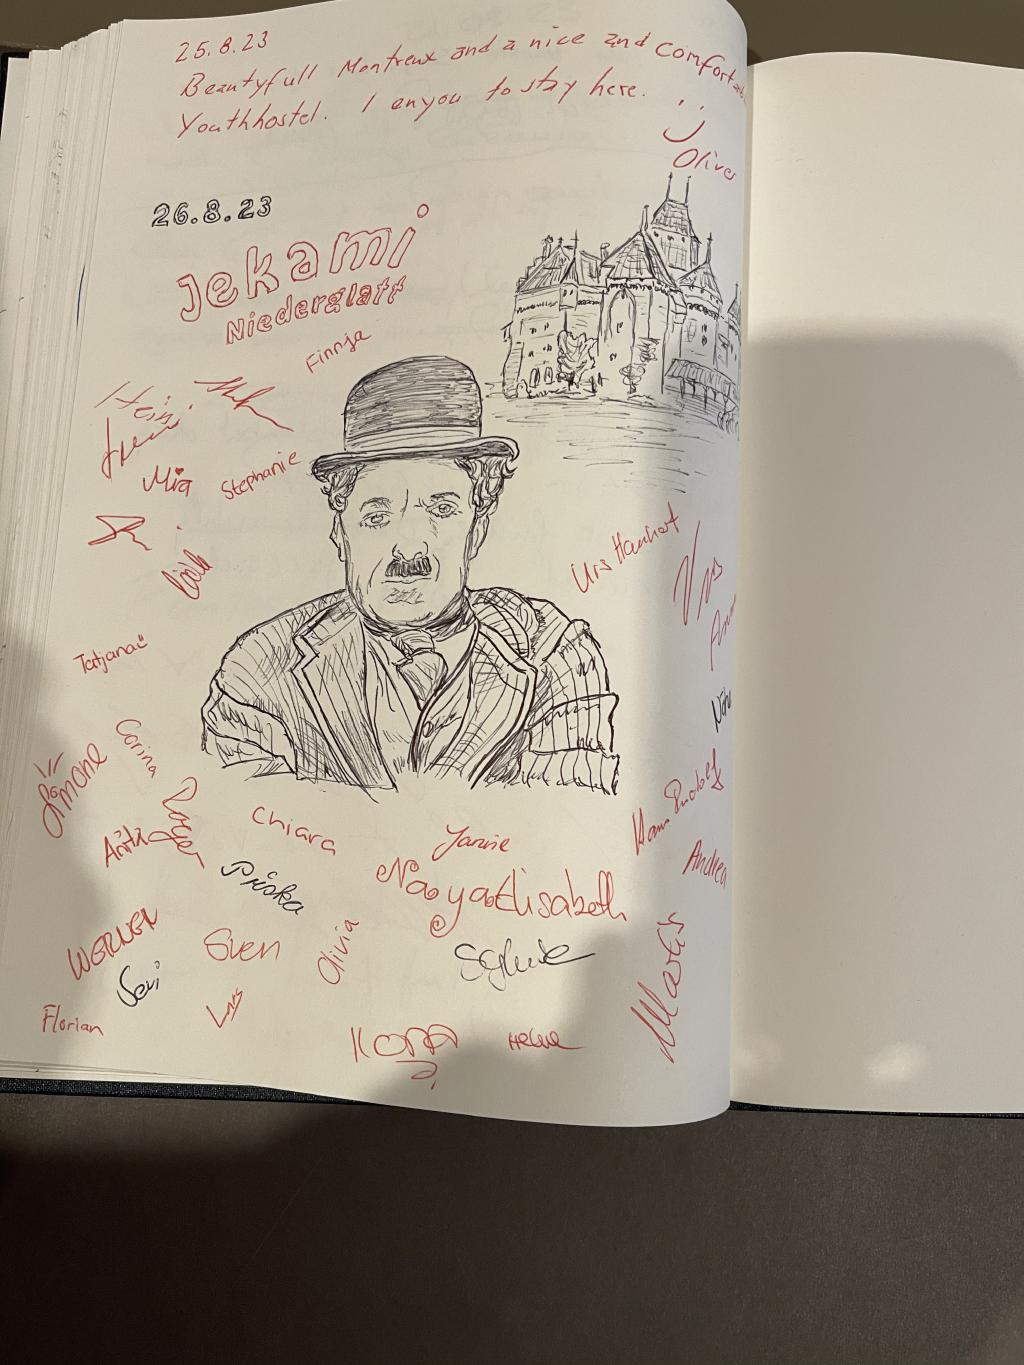 25.8.23
Beautyfull Montreux and a nice and comfortable
Youthhostel. I enyou to stay here.
Oliver
26.8.23
Jekami
Niederglatt
Finnja
Heini
Mia
Stephanie
Urs Hauhart
Tatjana
Corina
Simone
Roger
Chiara
Janine
Hans Rudolf
Anita
Andrea
Priska
Naya Elisabeth
WERNER
Sven
Olivia
Sylvie
Sevi
Florian
Ilona